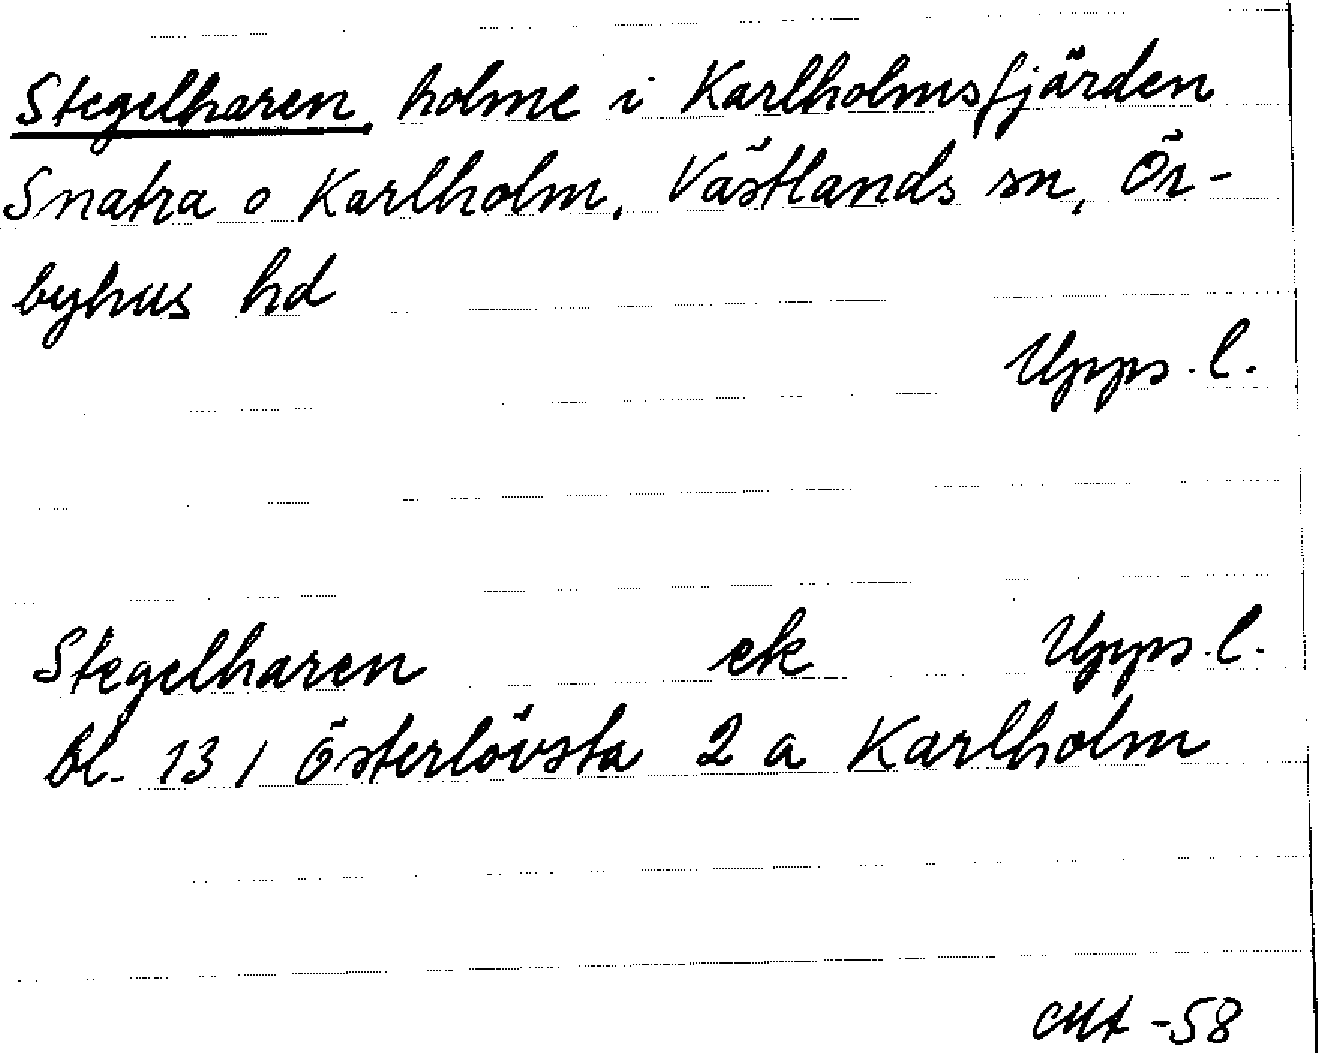 Stegelharen, holme i Karlholmsfjärden
Snatra o Karlholm, Västlands sn, Ör-
byhus hd
Upps. l.
Stegelharen ek Upps. l.
Bl. 13 1 Österlövsta 2 a Karlholm
-58